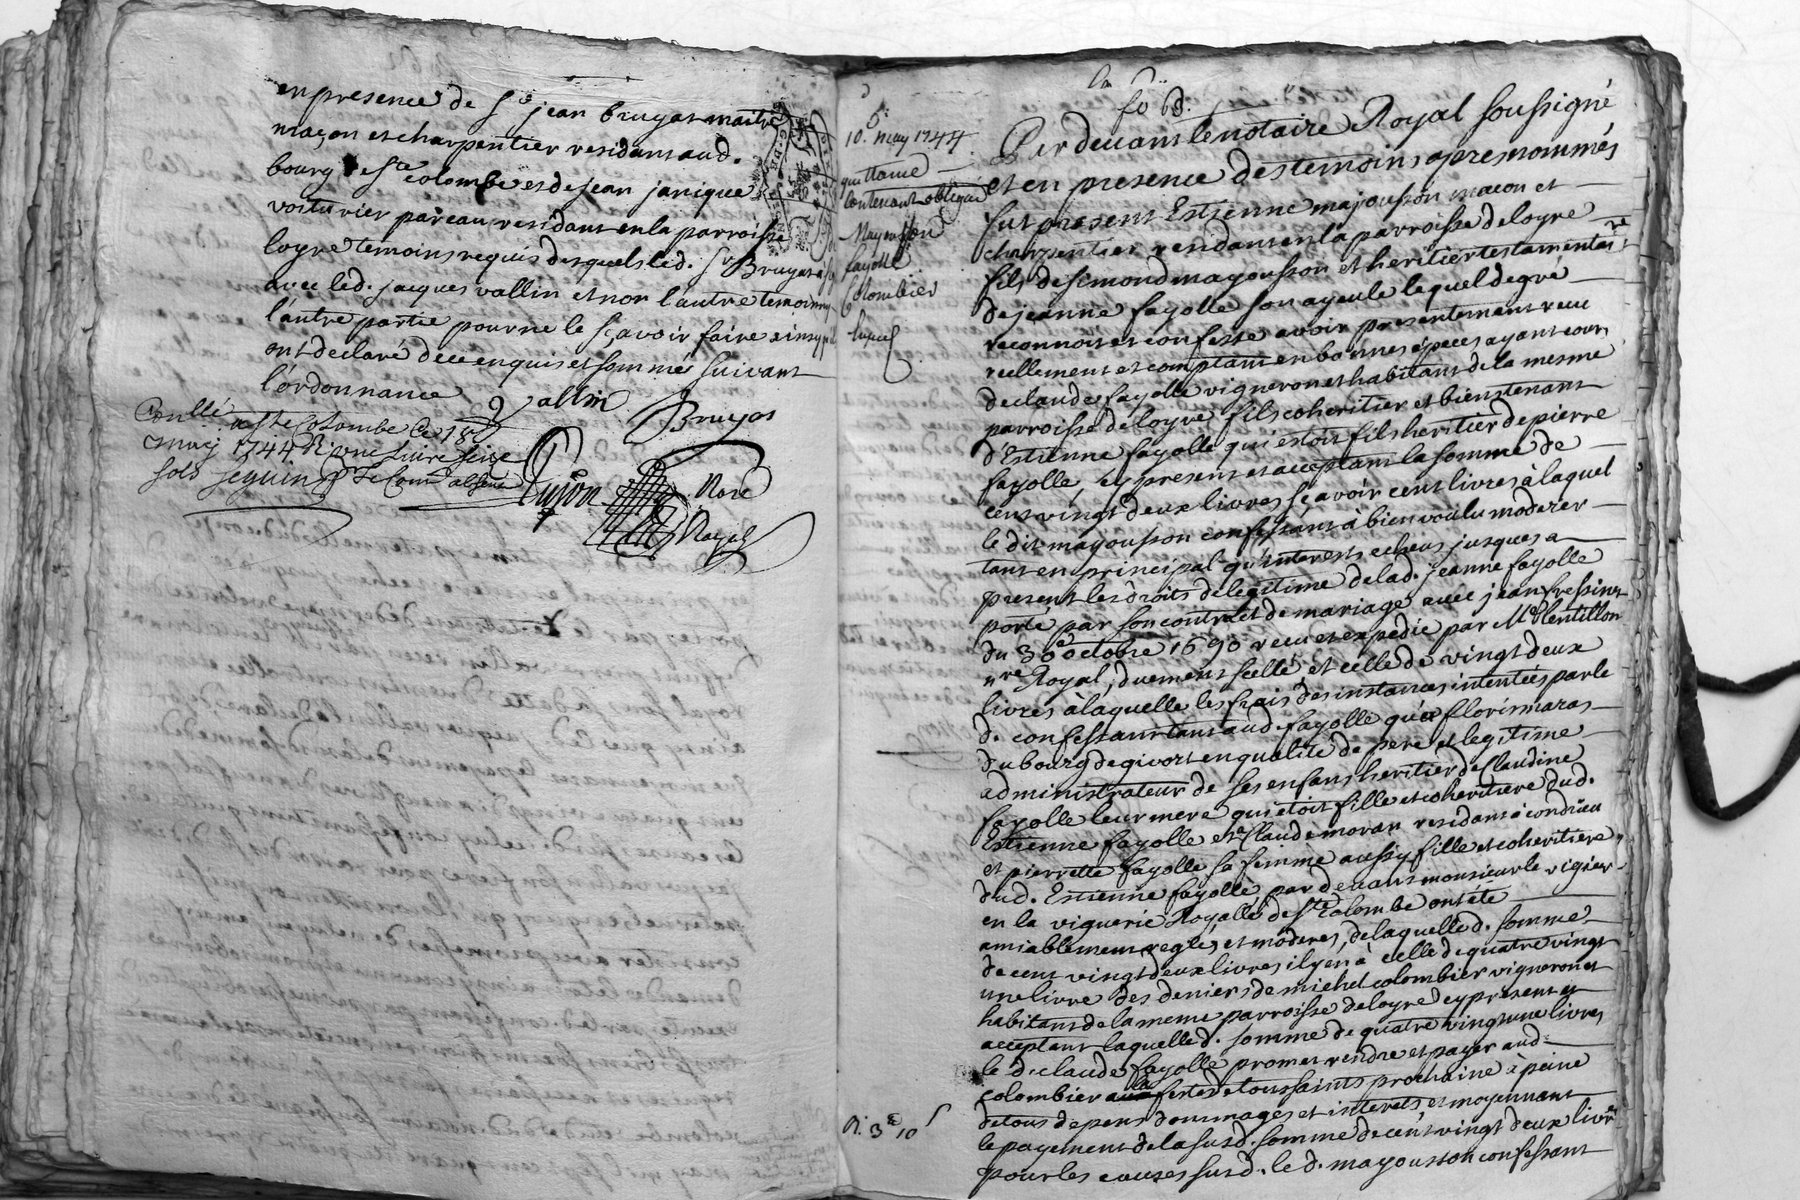 en presence de Sr jean bruyas maitre
maçon et charpentier residant aud.
bourg de Ste colombe et de jean janique
voiturier par eau residant en la parroisse
loyre temoins requis desquels led. Sr Bruyas a
avec led. jacques vallin et non l'autre temoin ny
l'autre partie pour ne le sçavoir faire ainsy
ont declaré de ce enquis et sommé suivant
l'ordonnance
Vallin
Bruyas
Conllé a Ste Colombe le 18
may 1744 R une livre seise
sols seguin
Dujon
Nore
Royal
fo 63.
5e
10. may 1744
quittance
contenant obligaon
Mayousson
fayolle
Colombier
Par devant le notaire Royal soussigné
et en presence des temoins apres nommés
fut present Estienne majousson macon et
charpentier residant en la parroisse de loyre
fils de simond mayousson et heritier testamentaire
de jeanne fayolle son ayeule lequel de gré
reconnoit et confesse avoir presentement receu
reellement et comptant en bonnes especes ayant cours
de claude fayolle vigneron et habitant de la mesme
parroisse de loyre fils coheritier et bientenant
d'Estienne fayolle qui estoit fils heritier de pierre
fayolle, cy present et acceptant la somme de
cent vingt deux livres sçavoir cent livres à laquel
le dit mayousson confessant à bien voulu moderer
tant en principal qu'interests echeus jusques a
present les droits de legitime de lad. jeanne fayolle
porté par son contract de mariage avec jean fressinet
du 30e octobre 1690 receu et expedié par Me Lentillon
nre Royal, duement scellé, et celle de vingt deux
livres à laquelle les frais des instances intentées par le
d. confessant tant aud. fayolle qu'a floris maras
du bourg de givort en qualité de pere et legitime
administrateur de ses enfans heritier de Claudine
fayolle leur mere qui étoit fille et coheritiere dud.
Estienne fayolle et Claude moran residant à condrieu
et pierrette fayolle sa femme aussy fille et coheritiere
dud. Estienne fayolle, par devant monsieur le viguier
en la viguerie Royalle de Ste Colombe ont été
amiablement reglés et moderés, de laquelle d. somme
de cent vingt deux livres il y en à celle de quatre vingt
une livre des deniers de michel colombier vigneron et
habitant de la meme parroisse de loyre cy present et
acceptant laquelle d. somme de quatre vingt une livres
le d. claude fayolle promet rendre et payer aud.
colombier a la feste de toussaints prochaine à peine
de tous depens dommages et interets, et moyennant
le payement de la susd. somme de cent vingt deux livres
pour les causes susd. le d. mayousson confessant
R. 3£ 10s